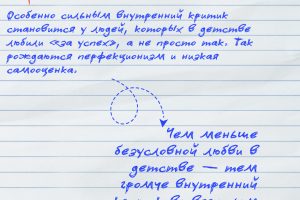 Особенно сильным внутренний критик
становится у людей, которых в детстве
любили «за успех», а не просто так. Так
рождаются перфекционизм и низкая
самооценка.
Чем меньше
безусловной любви в
детстве — тем
громче внутренний